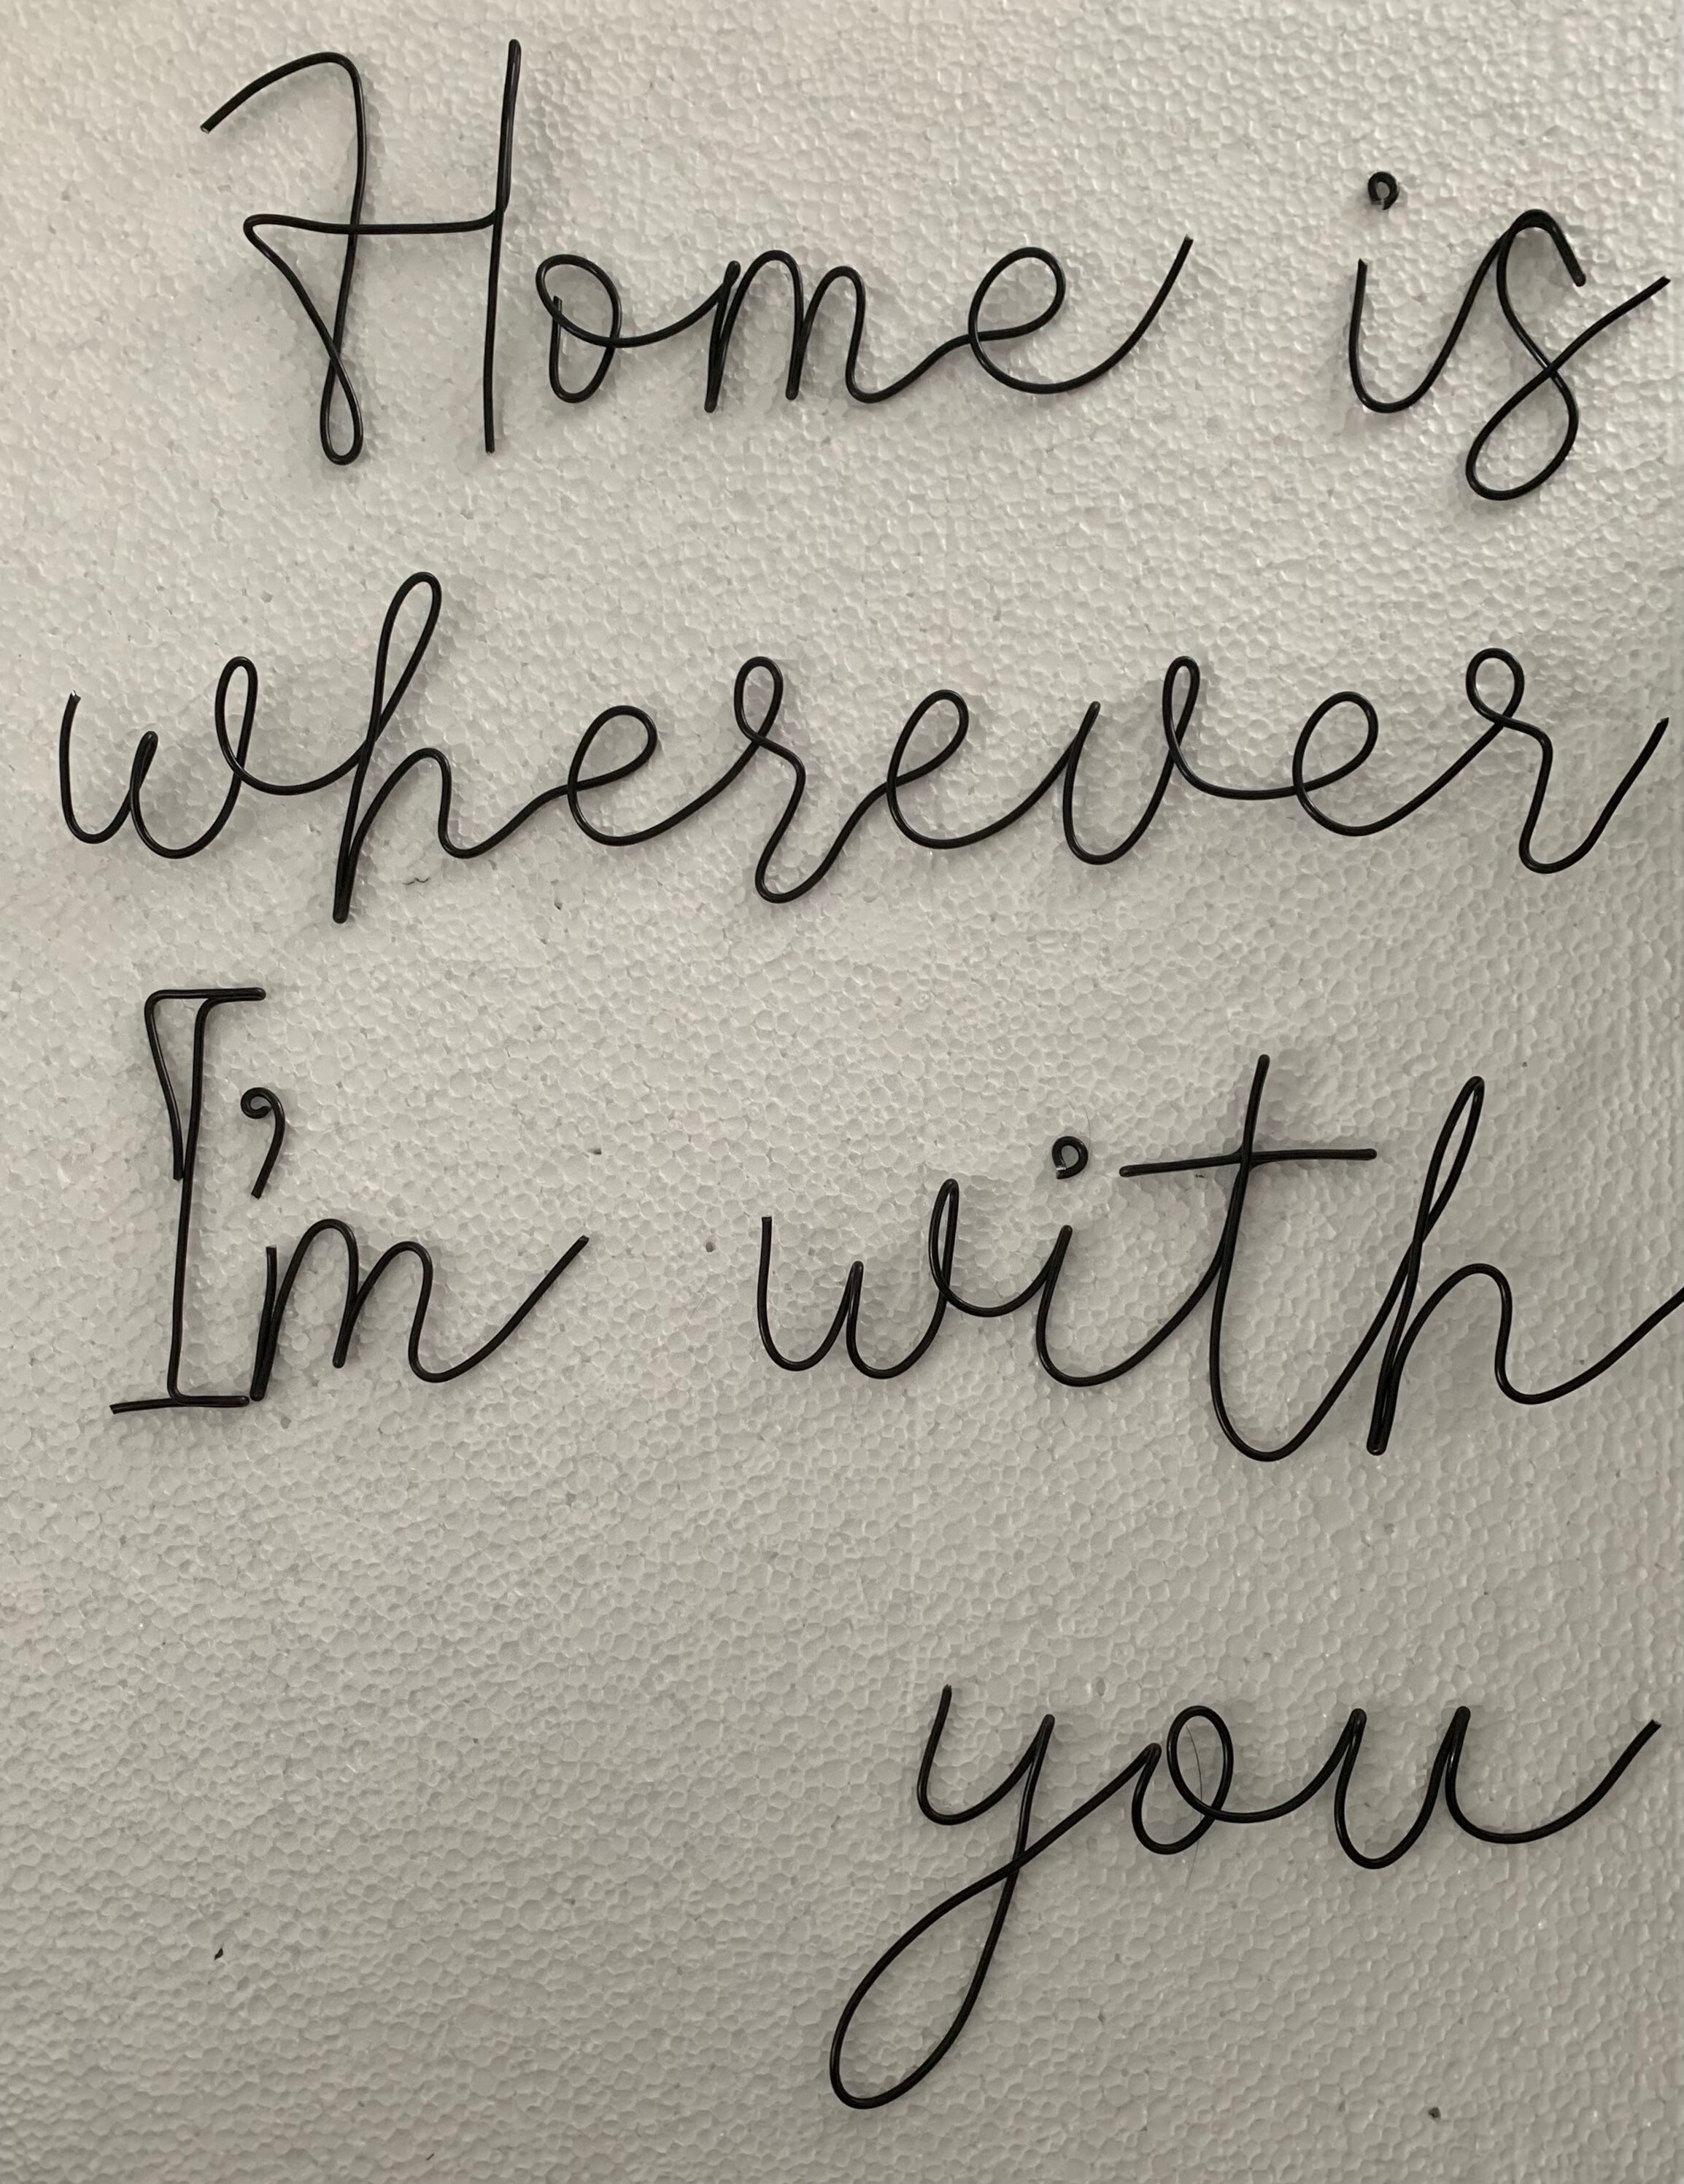 Home is
wherever
I'm with
you